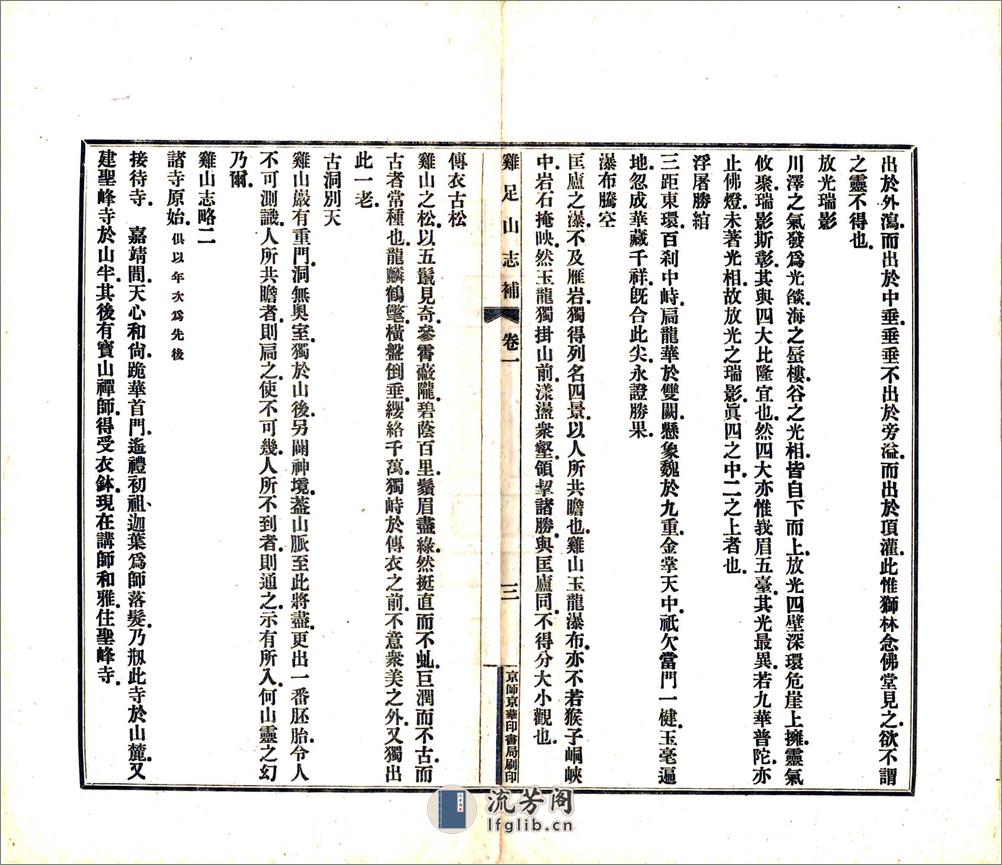 出於外瀉而出於中垂垂垂不出於旁溢而出於頂灌此惟獅林念佛堂見之欲不謂
之靈不得也
放光瑞影
川澤之氣發爲光燄海之蜃樓谷之光相皆自下而上放光四壁深環危崖上擁靈氣
攸聚瑞影斯彰其與四大比隆宜也然四大亦惟我眉五臺其光最異若九華普陀亦
止佛燈未著光相故放光之瑞影眞四之中二之上者也
浮屠勝綰
三距東環百刹中峙扃龍華於雙闕懸象魏於九重金掌天中祇欠當門一楗玉毫遍
地忽成華藏千祥旣合此尖永證勝果
瀑布騰空
匡廬之瀑不及雁岩獨得列名四景以人所共瞻也雞山玉龍瀑布亦不若猴子峒峽
中岩石掩映然玉龍獨掛山前漾瀊衆壑領挈諸勝與匡廬同不得分大小觀也
雞足山志補 卷一 三 京師京華印書局刷印
傳衣古松
雞山之松以五鬣見奇參霄蔽隴碧蔭百里鬚眉盡綠然挺直而不虬巨潤而不古而
古者當種也龍鱗鶴氅橫盤倒垂纓絡千萬獨峙於傳衣之前不意衆美之外又獨出
此一老
古洞別天
雞山巖有重門洞無奧室獨於山後另闢神境葢山脈至此將盡更出一番胚胎令人
不可測識人所共瞻者則扃之使不可幾人所不到者則通之示有所入何山靈之幻
乃爾
雞山志略二
諸寺原始 俱以年次爲先後
接待寺 嘉靖間天心和尙跪華首門遙禮初祖迦葉爲師落髮乃剏此寺於山麓又
建聖峰寺於山半其後有寶山禪師得受衣鉢現在講師和雅住聖峰寺
流芳阁
lfglib.cn